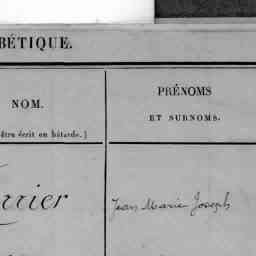 BÉTIQUE.
NOM.
PRÉNOMS
ET SURNOMS.
être écrit en bâtarde.)
rrier
Jean Marie Joseph